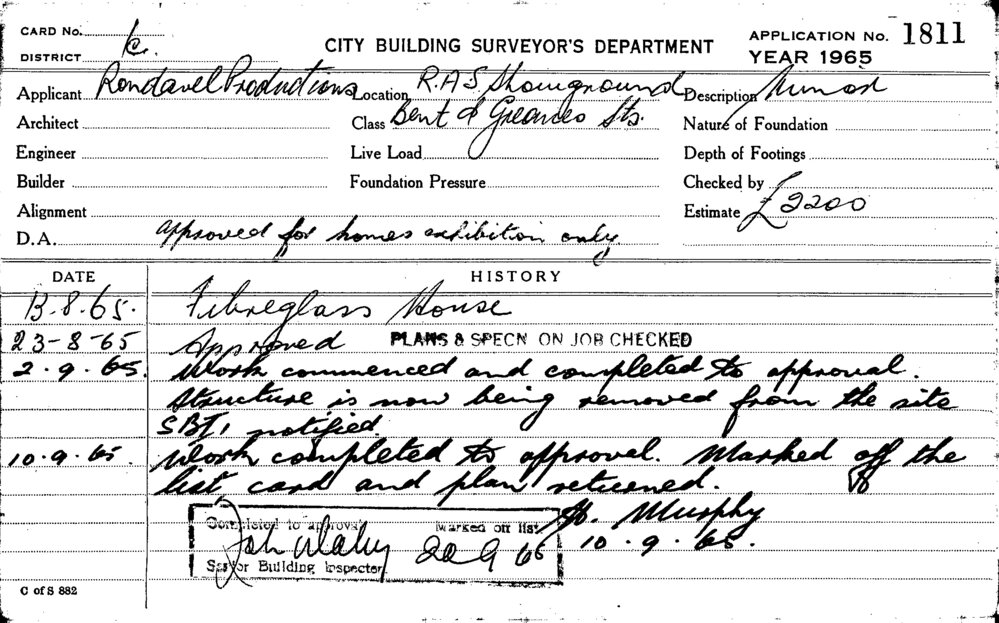 CARD No.
APPLICATION No. 1811
DISTRICT
CITY BUILDING SURVEYOR'S DEPARTMENT
YEAR 1965
Applicant Rondavel Productions Location R.A.S. Showground Description Minor
Architect Class Bent & Greaves Sts. Nature of Foundation
Engineer Live Load Depth of Footings
Builder Foundation Pressure Checked by
Alignment Estimate £2200
D.A. approved for homes exhibition only
DATE HISTORY
13.8.65. Fibreglass House
23-8-65 Approved PLANS & SPECN ON JOB CHECKED
2.9.65. Work commenced and completed to approval.
Structure is now being removed from the site
notified.
10.9.65. Work completed to approval. Marked off the
list card and plan returned.
Completed to approval Marked off list
Murphy
20 9 65 10.9.65.
Senior Building Inspector
C of S 882